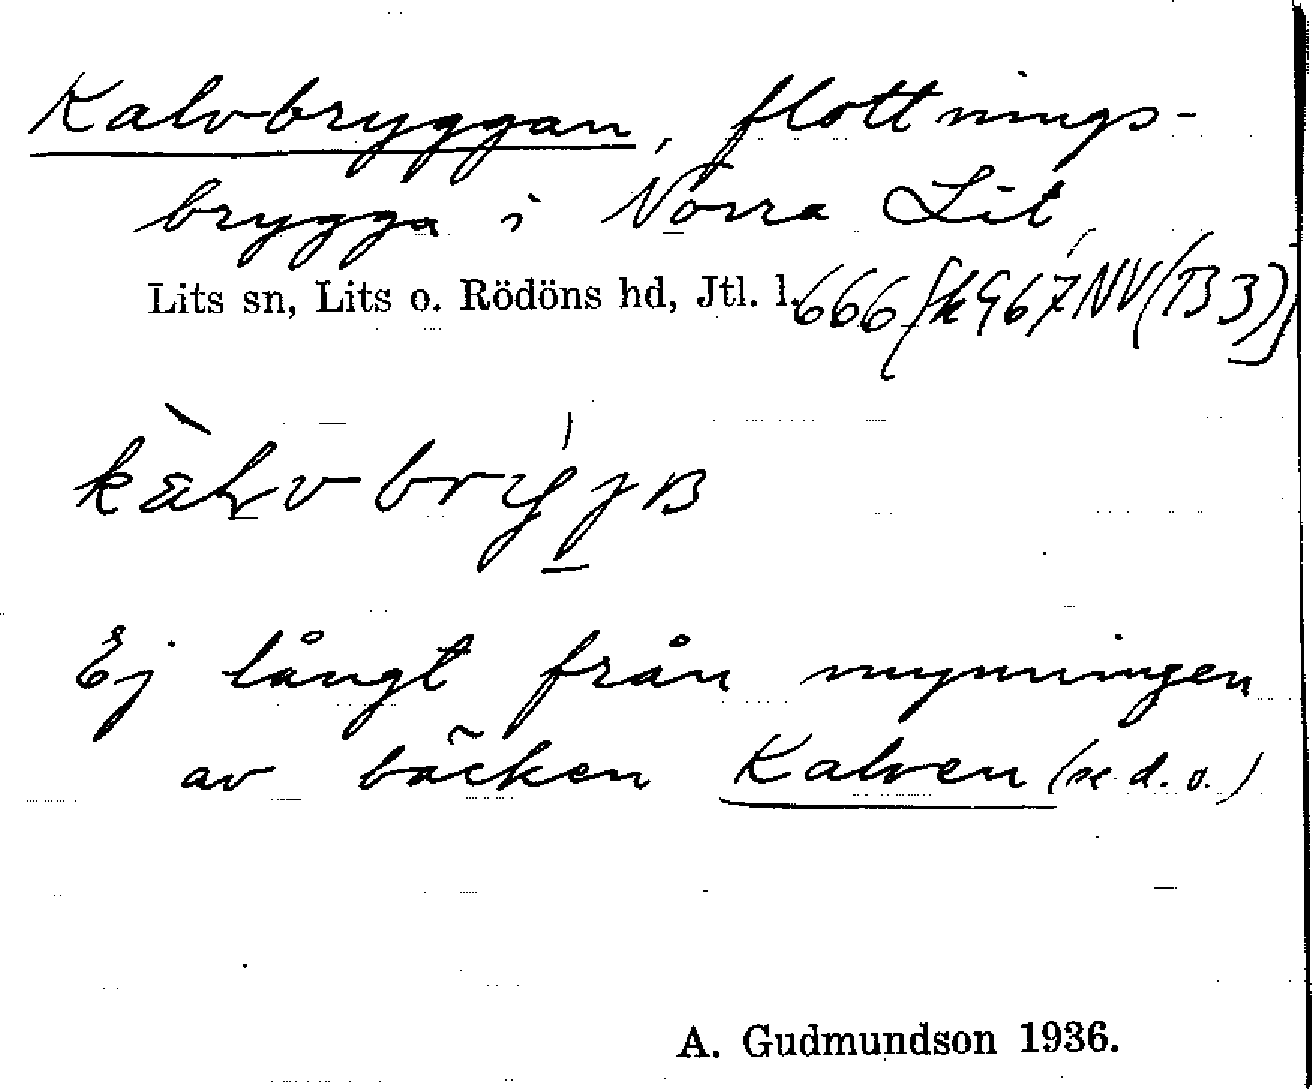 Kalvbryggan, flottnings-
brygga i Norra Lit
Lits sn, Lits o. Rödöns hd, Jtl. l. 666
Ej långt från mynningen
av bäcken Kalven (se d. o.)
A. Gudmundson 1936.